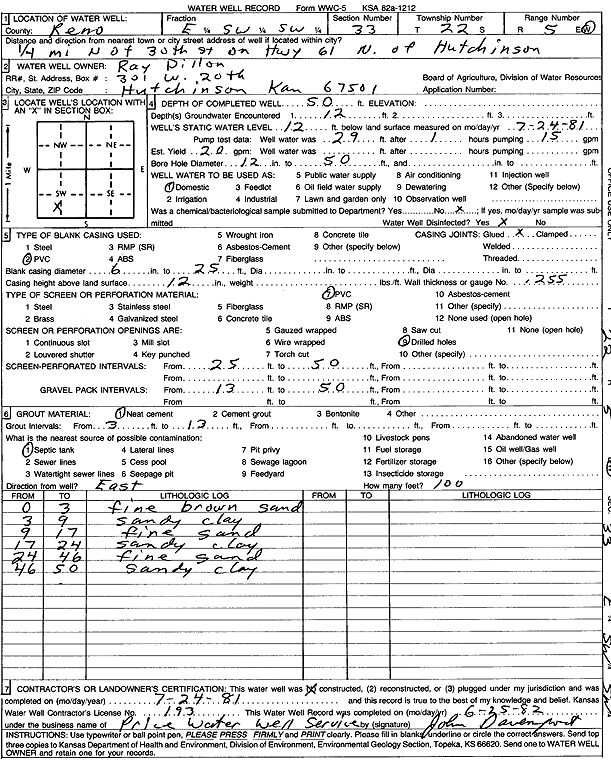 WATER WELL RECORD Form WWC-5 KSA 82a-1212
1 LOCATION OF WATER WELL: Fraction Section Number Township Number Range Number
County: Reno E ¼ SW ¼ SW ¼ 33 T 22 S R 5 E/W
Distance and direction from nearest town or city street address of well if located within city?
1/4 mi N of 30th St on Hwy 61 N. of Hutchinson
2 WATER WELL OWNER: Ray Dillon
RR#, St. Address, Box # : 301 W. 20th Board of Agriculture, Division of Water Resources
City, State, ZIP Code : Hutchinson Kan 67501 Application Number:
3 LOCATE WELL'S LOCATION WITH AN "X" IN SECTION BOX:
N
NW NE
W E
SW SE
X
S
1 Mile
4 DEPTH OF COMPLETED WELL 50 ft. ELEVATION:
Depth(s) Groundwater Encountered 1. 12 ft. 2. ft. 3. ft.
WELL'S STATIC WATER LEVEL 12 ft. below land surface measured on mo/day/yr 7-24-81
Pump test data: Well water was 29 ft. after 1 hours pumping 15 gpm
Est. Yield 20 gpm: Well water was ft. after hours pumping gpm
Bore Hole Diameter 12 in. to 50 ft., and in. to ft.
WELL WATER TO BE USED AS: 5 Public water supply 8 Air conditioning 11 Injection well
1 Domestic 3 Feedlot 6 Oil field water supply 9 Dewatering 12 Other (Specify below)
2 Irrigation 4 Industrial 7 Lawn and garden only 10 Observation well
Was a chemical/bacteriological sample submitted to Department? Yes No X ; If yes, mo/day/yr sample was submitted
Water Well Disinfected? Yes X No
5 TYPE OF BLANK CASING USED: 5 Wrought iron 8 Concrete tile CASING JOINTS: Glued X Clamped
1 Steel 3 RMP (SR) 6 Asbestos-Cement 9 Other (specify below) Welded
2 PVC 4 ABS 7 Fiberglass Threaded
Blank casing diameter 6 in. to 25 ft., Dia in. to ft., Dia in. to ft.
Casing height above land surface 12 in., weight lbs./ft. Wall thickness or gauge No. .255
TYPE OF SCREEN OR PERFORATION MATERIAL: 7 PVC 10 Asbestos-cement
1 Steel 3 Stainless steel 5 Fiberglass 8 RMP (SR) 11 Other (specify)
2 Brass 4 Galvanized steel 6 Concrete tile 9 ABS 12 None used (open hole)
SCREEN OR PERFORATION OPENINGS ARE: 5 Gauzed wrapped 8 Saw cut 11 None (open hole)
1 Continuous slot 3 Mill slot 6 Wire wrapped 9 Drilled holes
2 Louvered shutter 4 Key punched 7 Torch cut 10 Other (specify)
SCREEN-PERFORATED INTERVALS: From 25 ft. to 50 ft., From ft. to ft.
From ft. to ft., From ft. to ft.
GRAVEL PACK INTERVALS: From 13 ft. to 50 ft., From ft. to ft.
From ft. to ft., From ft. to ft.
6 GROUT MATERIAL: 1 Neat cement 2 Cement grout 3 Bentonite 4 Other
Grout Intervals: From 3 ft. to 13 ft., From ft. to ft., From ft. to ft.
What is the nearest source of possible contamination: 10 Livestock pens 14 Abandoned water well
1 Septic tank 4 Lateral lines 7 Pit privy 11 Fuel storage 15 Oil well/Gas well
2 Sewer lines 5 Cess pool 8 Sewage lagoon 12 Fertilizer storage 16 Other (specify below)
3 Watertight sewer lines 6 Seepage pit 9 Feedyard 13 Insecticide storage
Direction from well? East How many feet? 100
FROM TO LITHOLOGIC LOG FROM TO LITHOLOGIC LOG
0 3 fine brown sand
3 9 sandy clay
9 17 fine sand
17 24 sandy clay
24 46 fine sand
46 50 sandy clay
7 CONTRACTOR'S OR LANDOWNER'S CERTIFICATION: This water well was (1) constructed, (2) reconstructed, or (3) plugged under my jurisdiction and was
completed on (mo/day/year) 7-24-81 and this record is true to the best of my knowledge and belief. Kansas
Water Well Contractor's License No. 193 This Water Well Record was completed on (mo/day/yr) 6-25-82
under the business name of Price Water Well Service by (signature) John Davenport
INSTRUCTIONS: Use typewriter or ball point pen, PLEASE PRESS FIRMLY and PRINT clearly. Please fill in blanks, underline or circle the correct answers. Send top
three copies to Kansas Department of Health and Environment, Division of Environment, Environmental Geology Section, Topeka, KS 66620. Send one to WATER WELL
OWNER and retain one for your records.
OFFICE USE ONLY